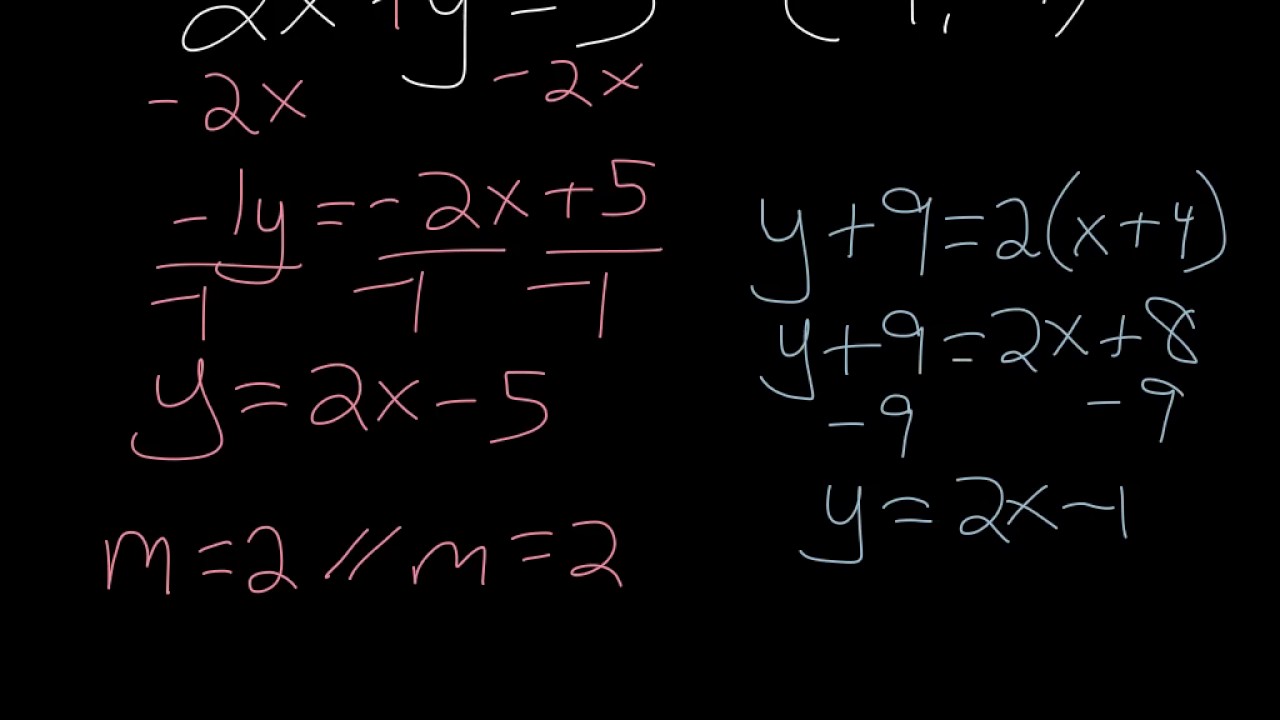 2x + y = 5
-2x -2x
-1y = -2x + 5
-1 -1 -1
y = 2x - 5
m = 2 // m = 2
y + 9 = 2(x + 4)
y + 9 = 2x + 8
-9 -9
y = 2x - 1